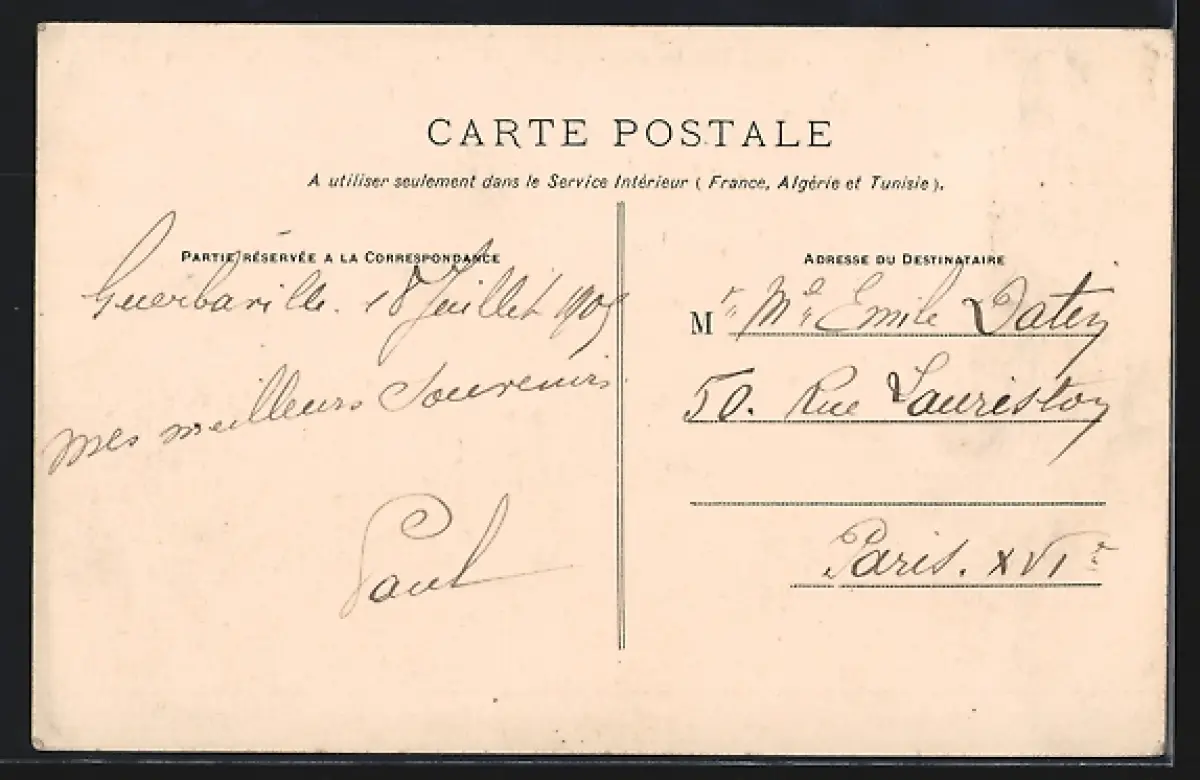 CARTE POSTALE
A utiliser seulement dans le Service Intérieur ( France, Algérie et Tunisie ).
PARTIE RÉSERVÉE A LA CORRESPONDANCE
Guerbaville. 18 Juillet 1905
mes meilleurs Souvenirs.
Paul
ADRESSE DU DESTINATAIRE
Mr, Md, Emile
50. Rue Lauriston
Paris. XVIe